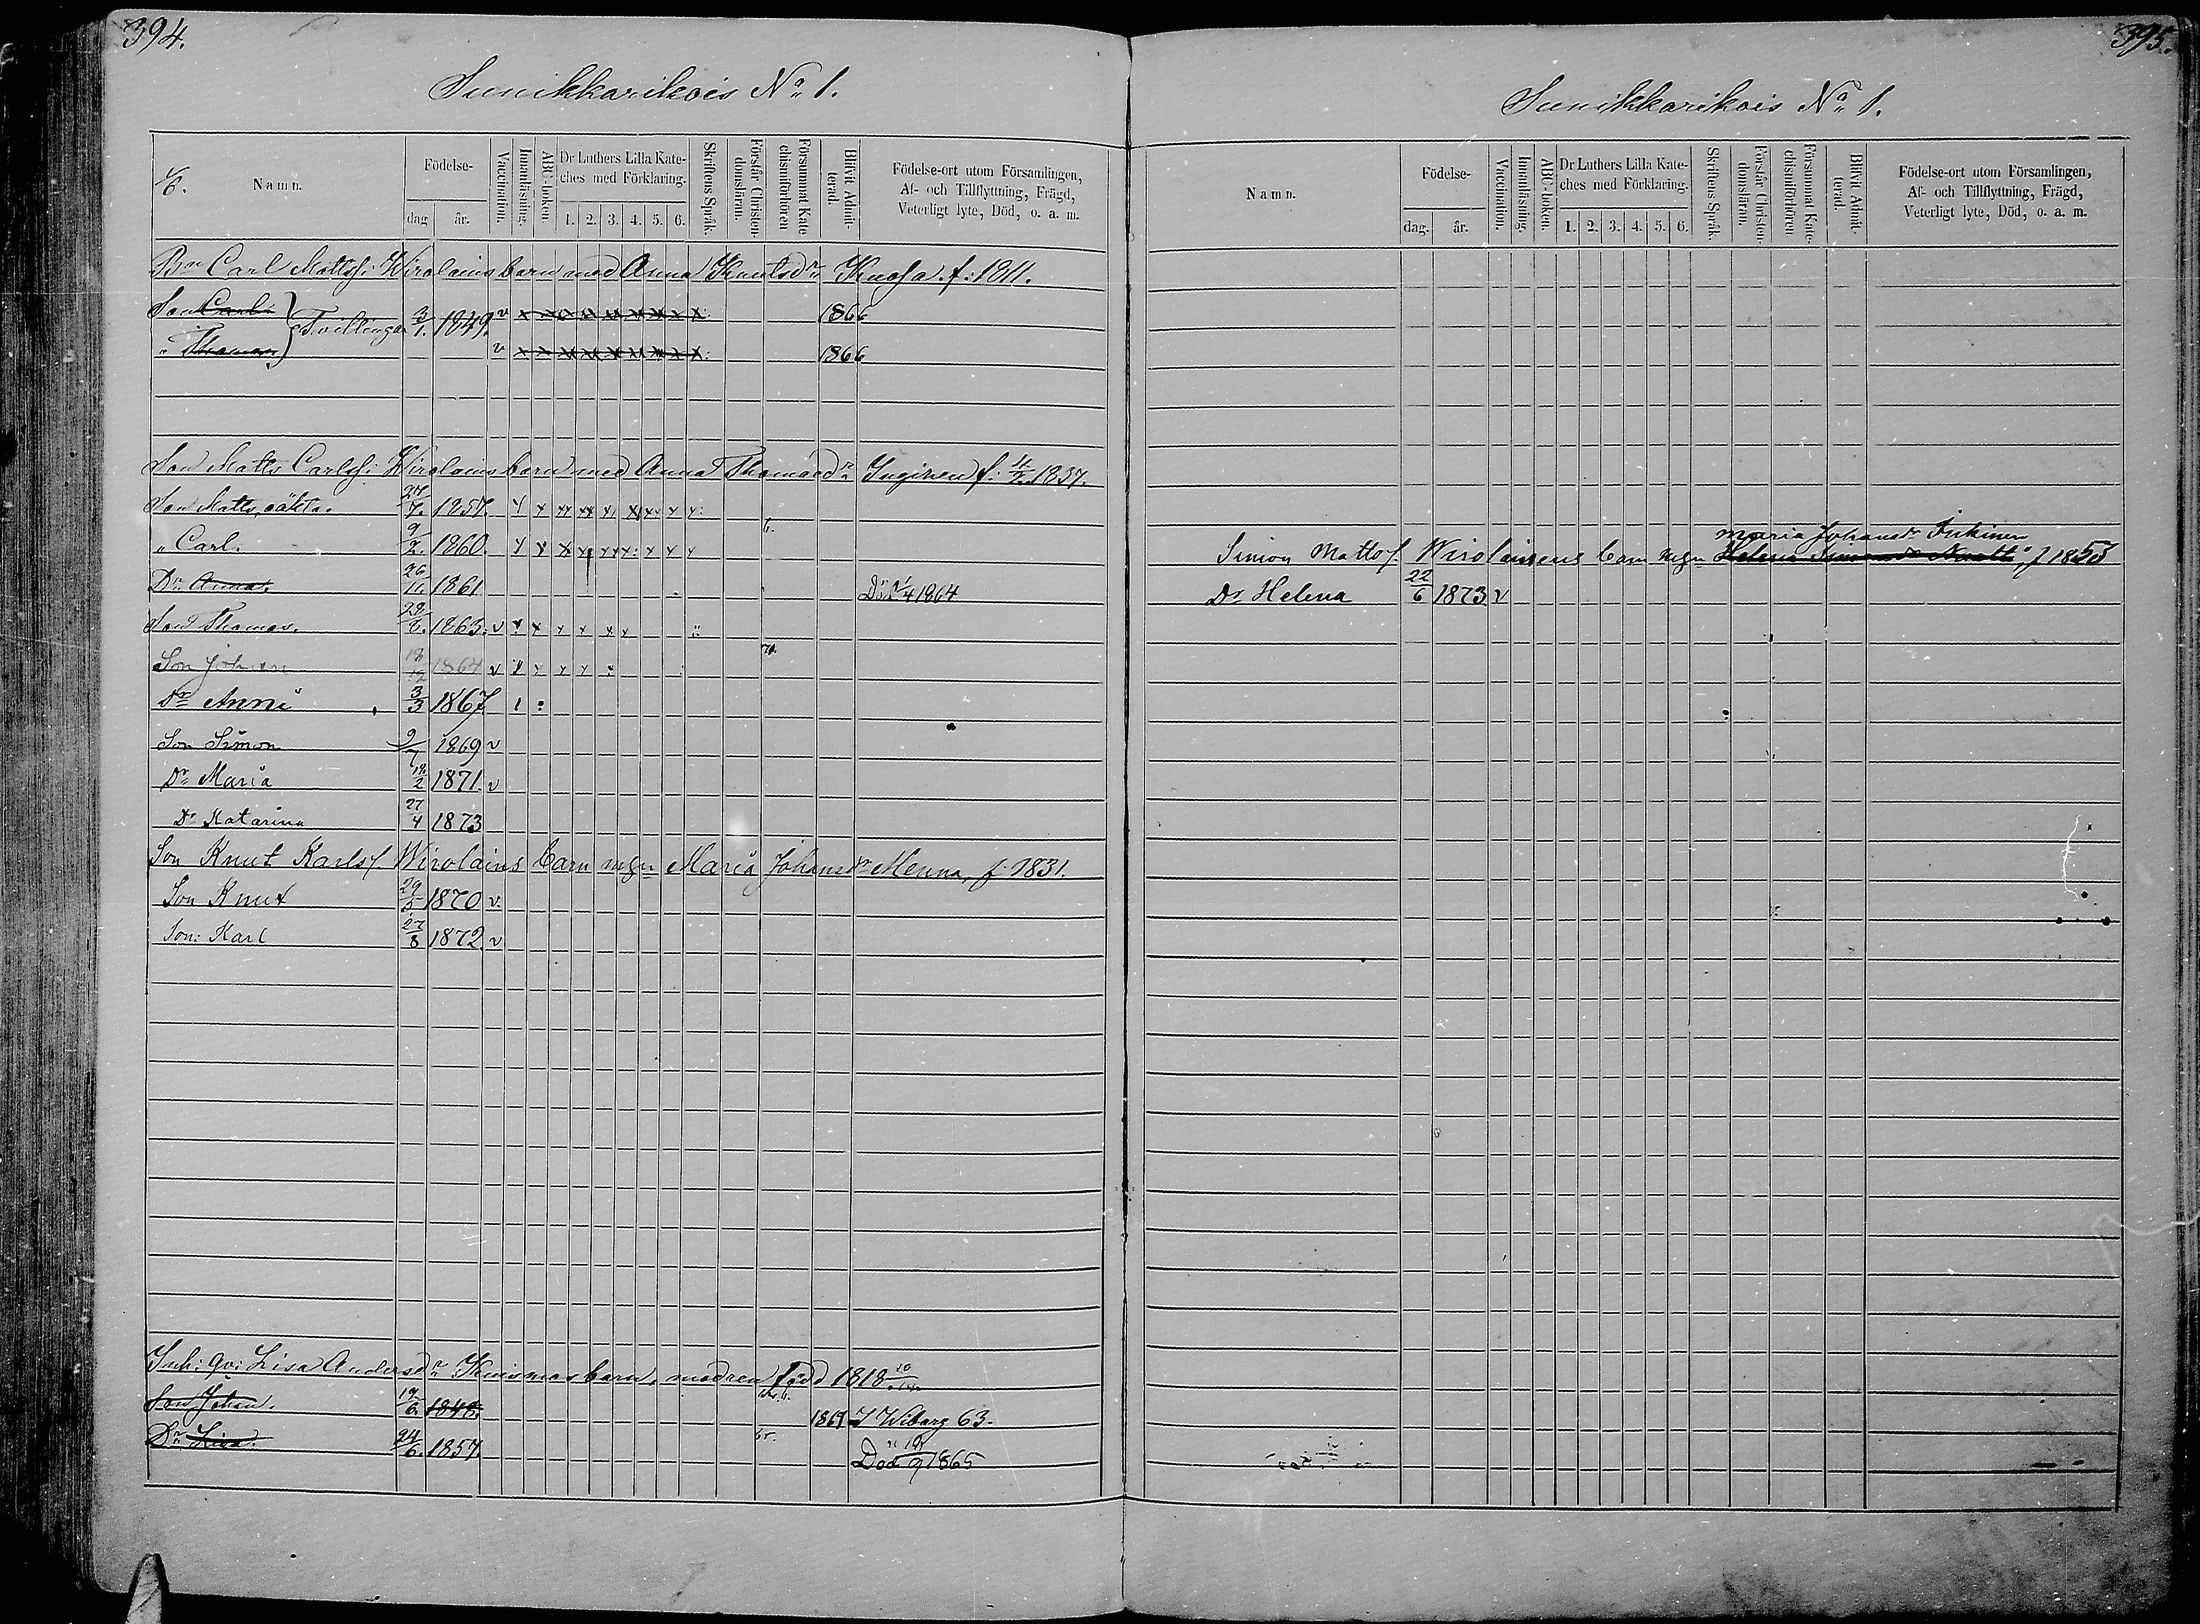 394.
Sunikkarikois No 1.
Namn.
Födelse-
dag
år.
Vaccination.
Innanläsning.
ABC-boken.
Dr Luthers Lilla Kate-
ches med Förklaring.
1. 2. 3. 4. 5. 6.
Skriftens Språk.
Förstår Christen-
domsläran.
Försummat Kate
chismiförhören
Blivit Admit-
terad.
Födelse-ort utom Församlingen,
Af- och Tillflyttning, Frägd,
Veterligt lyte, Död, o. a. m.
Carl Mattss: Wirolains barn med Anna Knutsdr f: 1811.
Son Carl Tvillingar 3/1. 1849. v 1866
" Thomas v 1866
Son Matts Carlss: Wirolains barn med Anna Thomasdr Inginen f: 1837.
Son Matts, oäkta. 27/7. 1857.
" Carl. 9/2. 1860.
Dr Anna. 1861 1864
Son Thomas. 1863. v
Son Johan 1864 v
Dr Anni 3/3 1867
Son Simon 9/7 1869 v
Dr Maria 18/2 1871. v
Dr Katarina 27/4 1873
Son Knut Karlss. Wirolains barn Maria Johansdr Menna, f. 1831.
Son Knut 29/5 1870 v.
Son: Karl 27/8 1872. v
Inh: qv: Lisa Andersdr Kuismas barn, modren född 1818
Son Johan. 19/6. 1848. 1869 I Wiborg 63.
Dr Lisa. 24/6. 1857. Död 1865
395.
Sunikkarikois No 1.
Namn.
Födelse-
dag.
år.
Vaccination.
Innanläsning.
ABC-boken.
Dr Luthers Lilla Kate-
ches med Förklaring.
1. 2. 3. 4. 5. 6.
Skriftens Språk.
Förstår Christen-
domsläran.
Försummat Kate-
chismiförhören
Blivit Admit-
terad.
Födelse-ort utom Församlingen,
Af- och Tillflyttning, Frägd,
Veterligt lyte, Död, o. a. m.
Maria Johansdr Inkinen
Simon Mattss. Wirolainens barn Helena f 1853
Dr Helena 22/6 1873. v